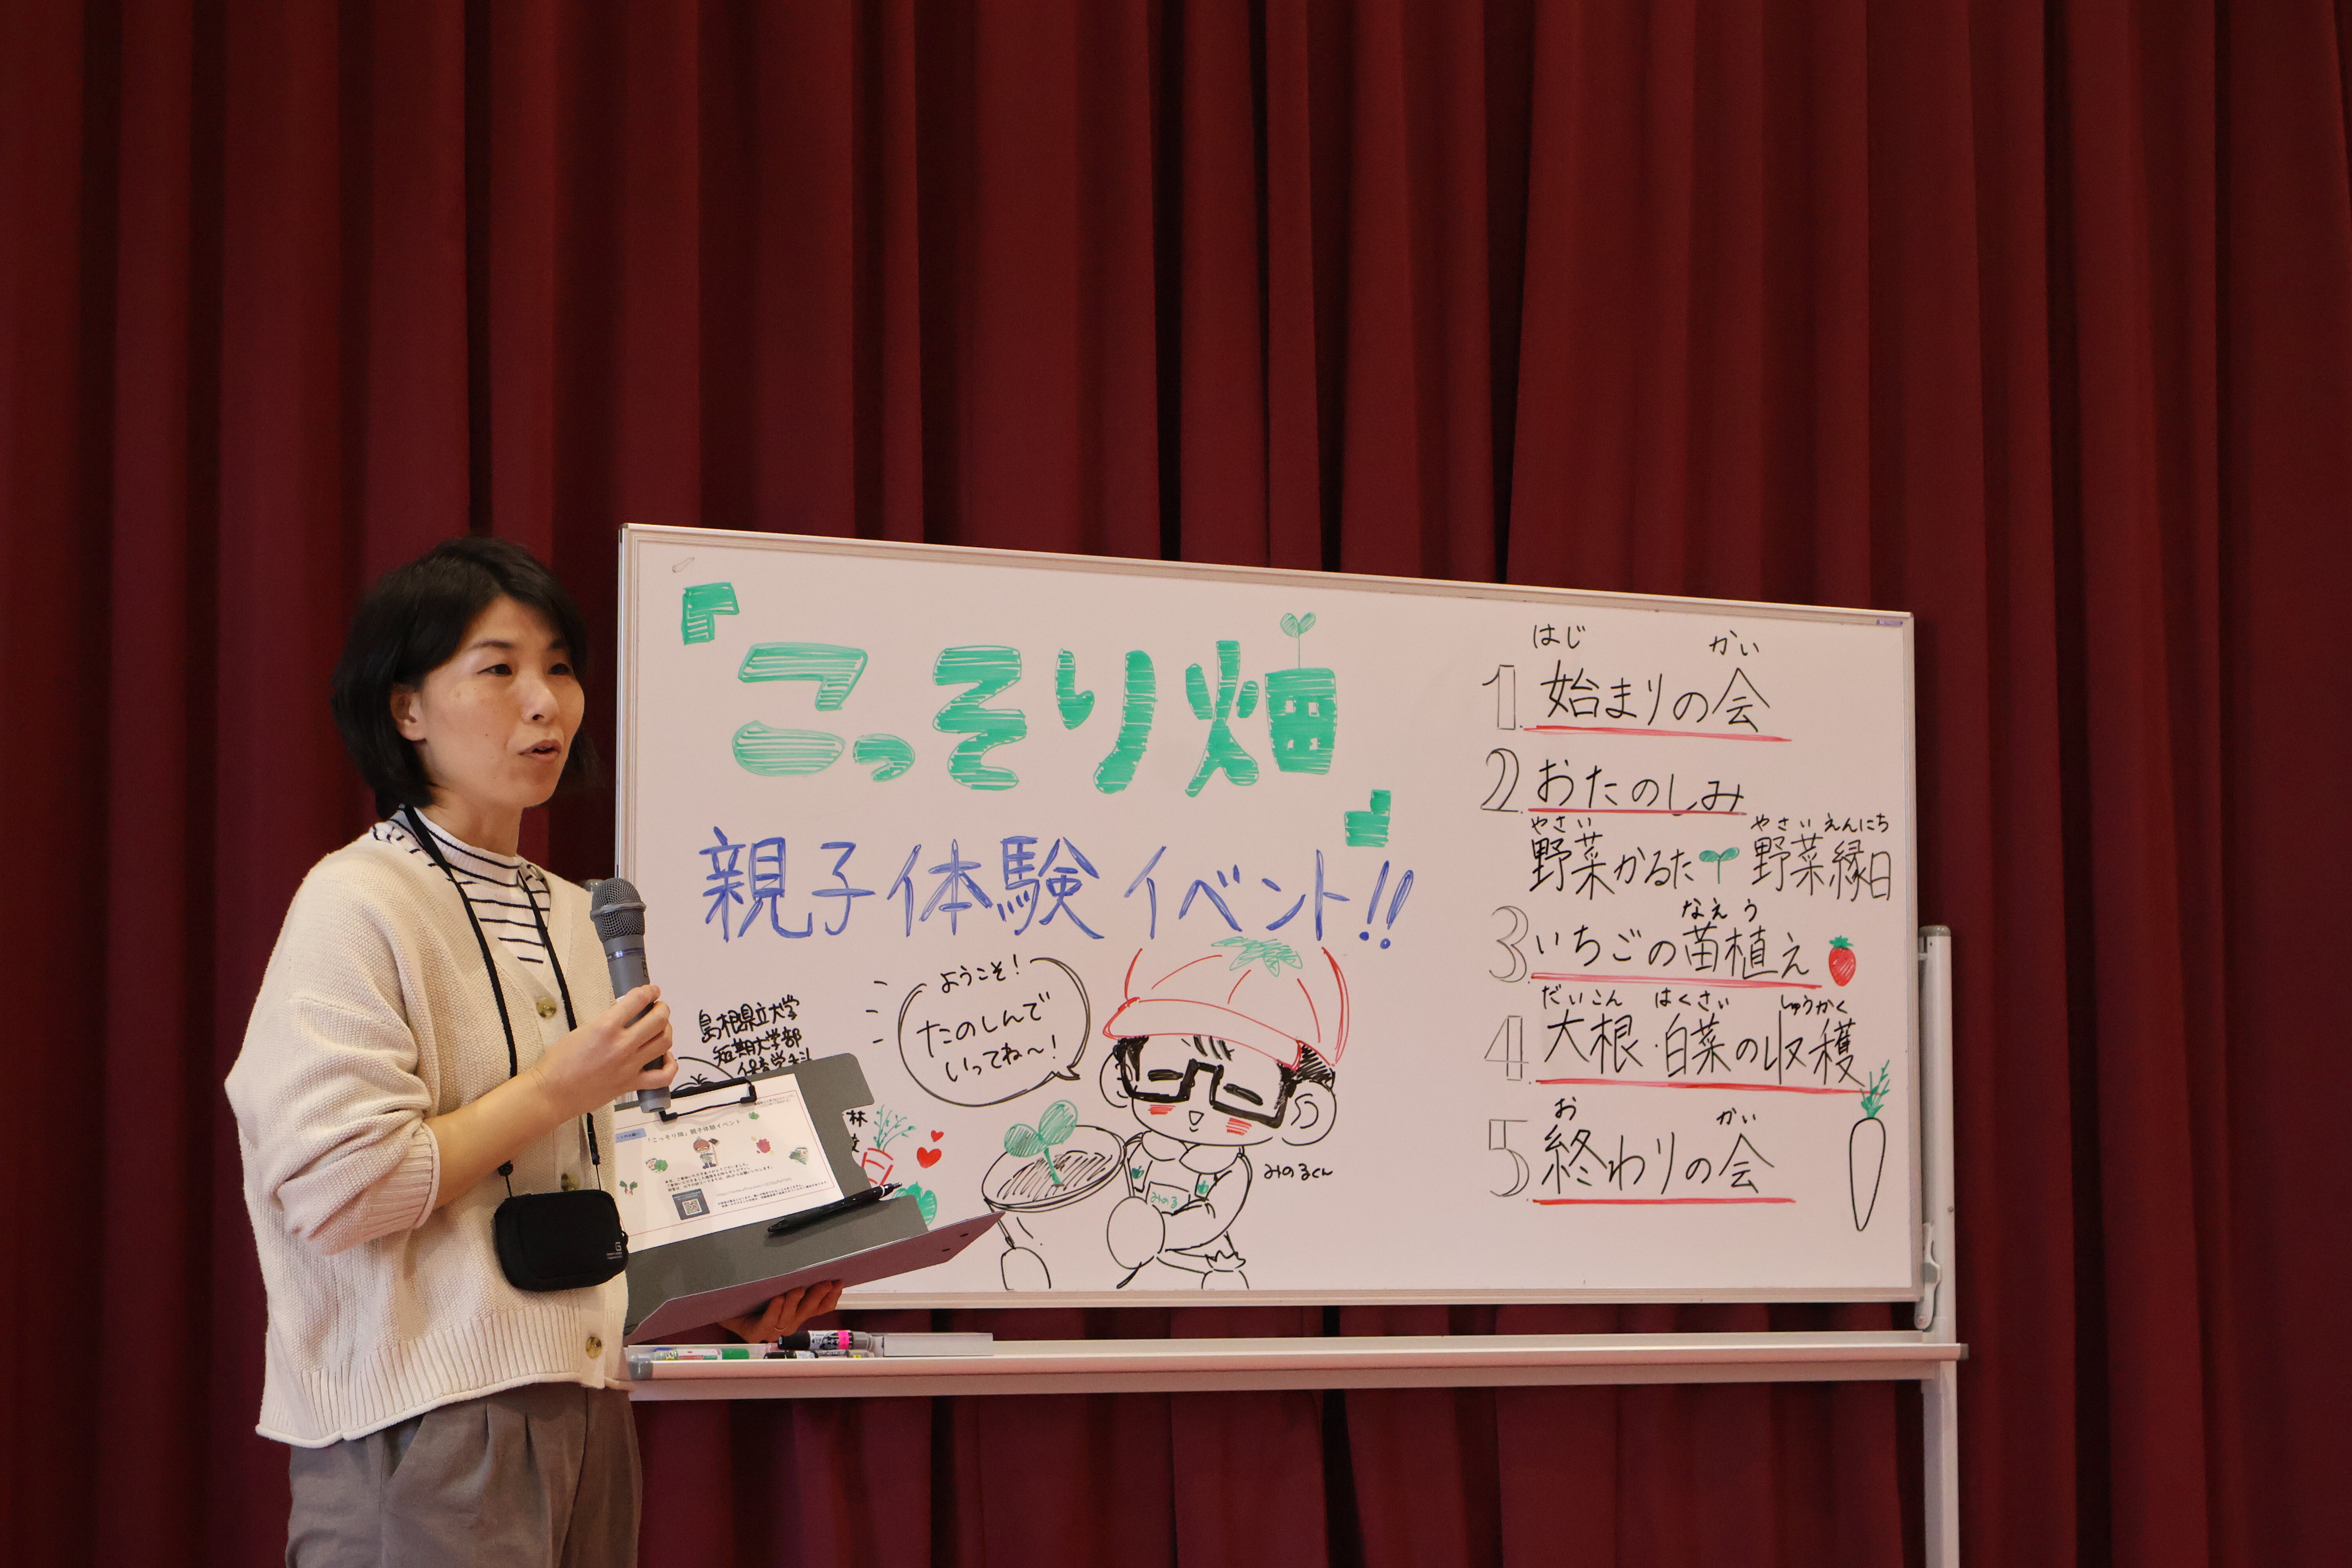 『こっそり畑』
親子体験イベント!!
ようこそ!
たのしんで
いってね〜!
島根県立大学
短期大学部
保育学科
林
みのる
みのるくん
はじ かい
1. 始まりの会
2. おたのしみ
やさい やさいえんにち
野菜かるた 野菜縁日
なえう
3 いちごの苗植え
だいこん はくさい しゅうかく
4. 大根・白菜の収穫
お かい
5. 終わりの会
「こっそり畑」親子体験イベント